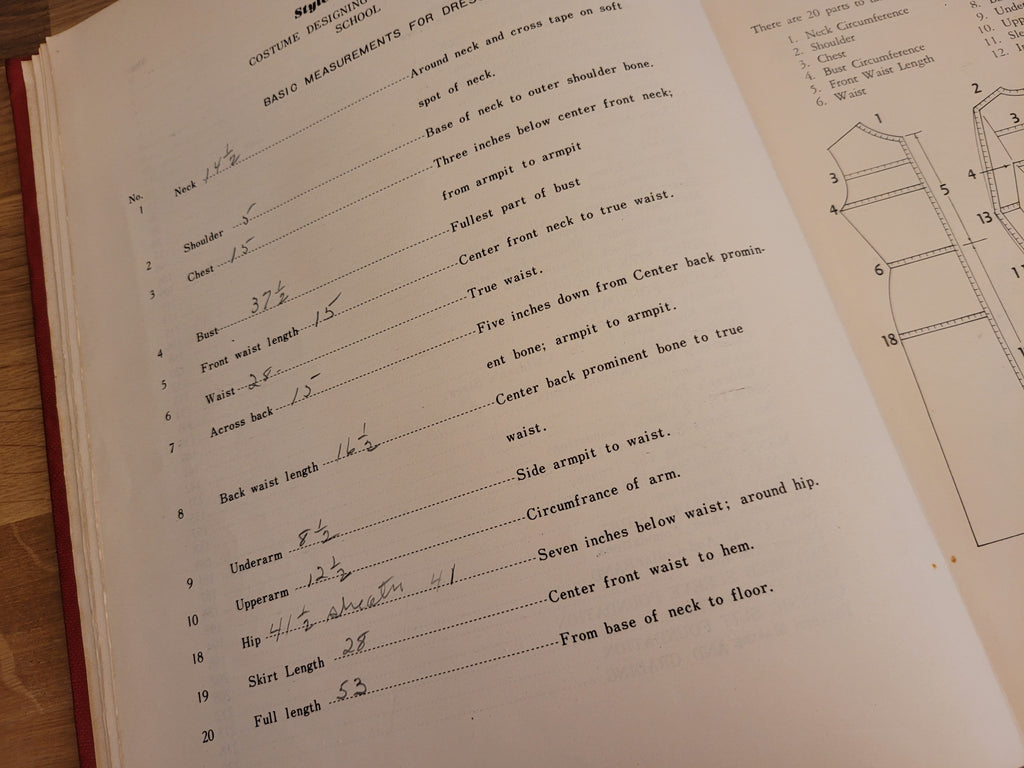 COSTUME DESIGNING
SCHOOL
BASIC MEASUREMENTS FOR
No.
1 Neck 14 1/2 Around neck and cross tape on soft
spot of neck.
2 Shoulder 5 Base of neck to outer shoulder bone.
3 Chest 15 Three inches below center front neck;
from armpit to armpit
4 Bust 37 1/2 Fullest part of bust
5 Front waist length 15 Center front neck to true waist.
6 Waist 28 True waist.
7 Across back 15 Five inches down from Center back promin-
ent bone; armpit to armpit.
8 Back waist length 16 1/2 Center back prominent bone to true
waist.
9 Underarm 8 1/2 Side armpit to waist.
10 Upperarm 12 1/2 Circumfrance of arm.
18 Hip 41 1/2 sheath 41 Seven inches below waist; around hip.
19 Skirt Length 28 Center front waist to hem.
20 Full length 53 From base of neck to floor.
There are 20 parts to
1. Neck Circumference
2. Shoulder
3. Chest
4. Bust Circumference
5. Front Waist Length
6. Waist
8.
9.
10.
11.
12.
1
3
4
5
6
18
2
3
4
13